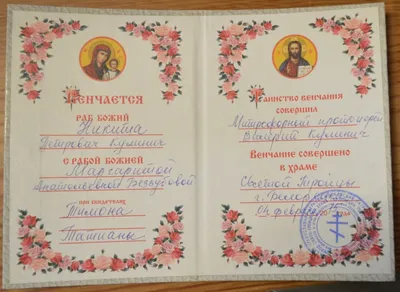 Венчается
раб Божий
Никита
Петрович Кулинич
с рабой Божией
Маргаритой
Анатольевной
при свидетелях
Тимона
Татианы
Таинство венчания
совершил
Митрофорный протоиерей
Валерий Кулинич
Венчание совершено
в храме
Святой Троицы
г. Белор
04 февраля